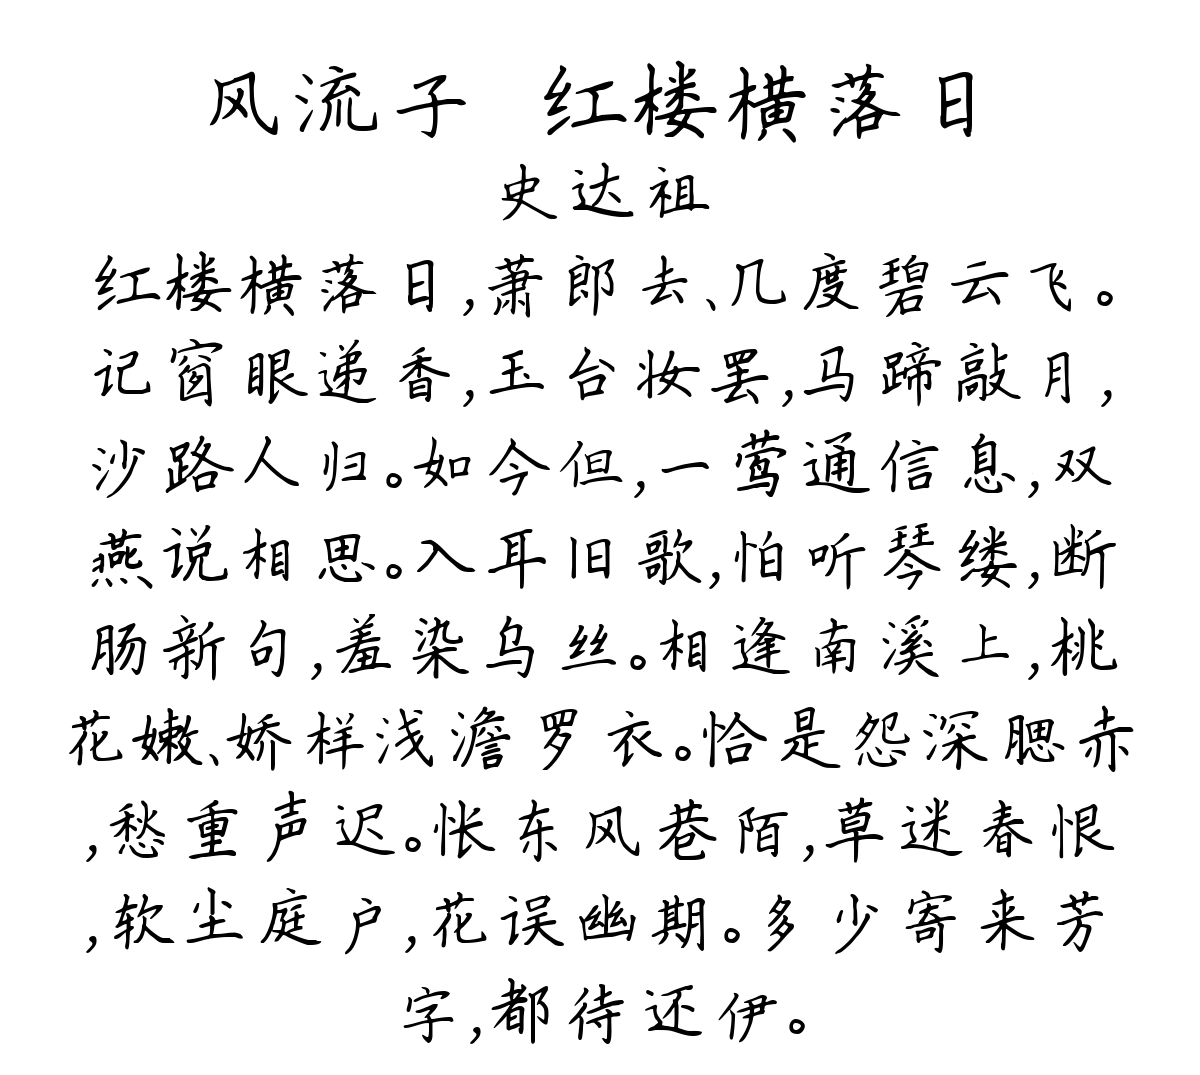 风流子 红楼横落日
史达祖
红楼横落日,萧郎去、几度碧云飞。
记窗眼递香,玉台妆罢,马蹄敲月,
沙路人归。如今但,一莺通信息,双
燕说相思。入耳旧歌,怕听琴缕,断
肠新句,羞染乌丝。相逢南溪上,桃
花嫩、娇样浅澹罗衣。恰是怨深腮赤
,愁重声迟。怅东风巷陌,草迷春恨
,软尘庭户,花误幽期。多少寄来芳
字,都待还伊。